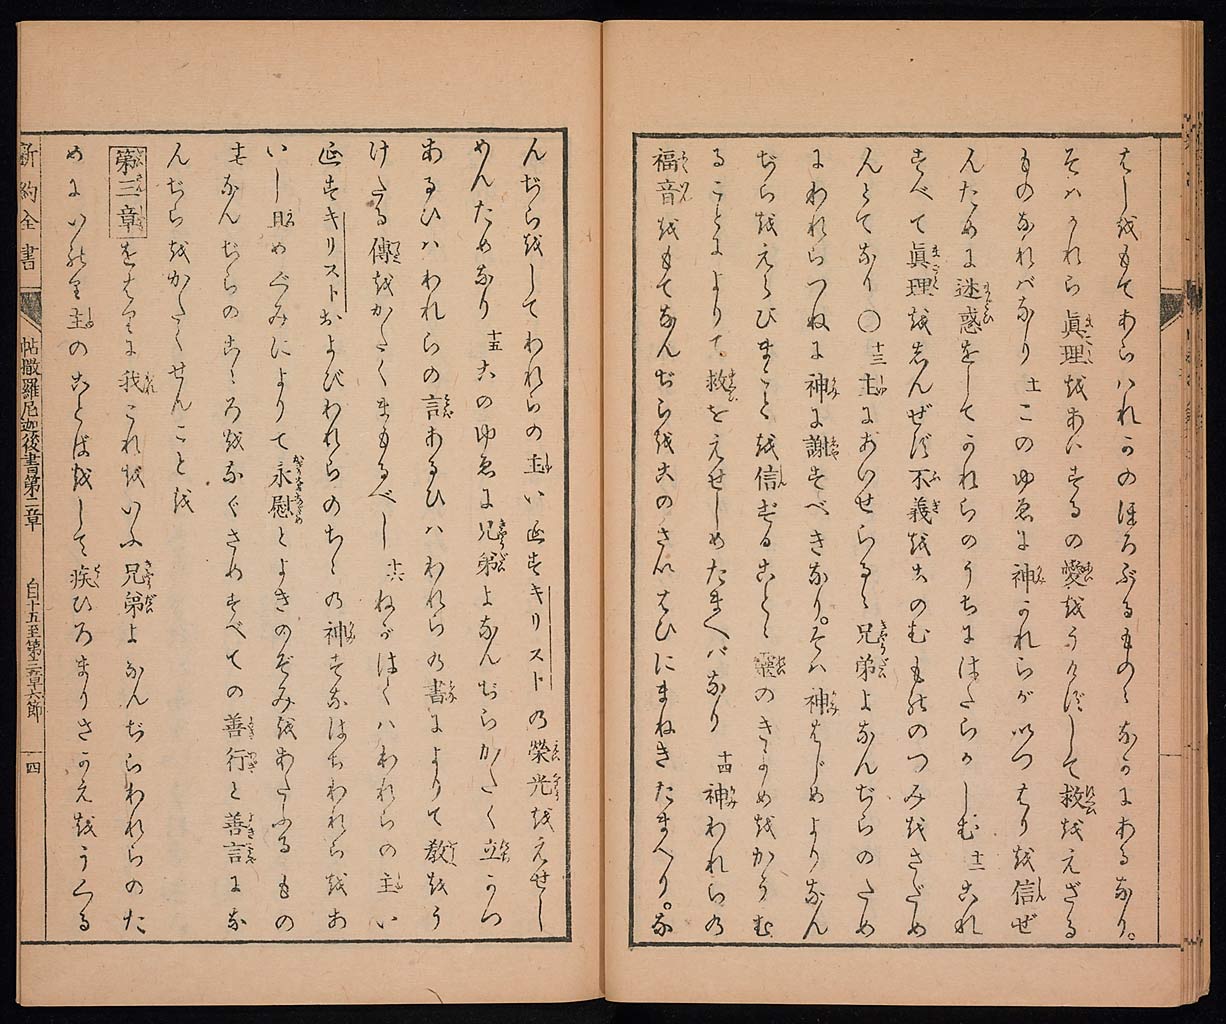 をもてあらはれかのほろぶるものゝなかにある
それかれら眞理をあいするの愛をうけずして救をえざる
ものなればなり 十一 このゆゑに神かれらがいつはりを信ぜ
んために迷惑をしてかれらのうちにはたらかしむ 十二 これ
すべて眞理をしんぜず不義をこのむものゝつみをさだめ
んとてなり 〇 十三 主にあいせらるゝ兄弟よなんぢらのため
にわれらつねに神に謝すべきなり。そは神はじめよりなん
ぢらをえらびまことを信ずることゝ靈のきよめをかうむ
ることによりて救をえせしめたまへばなり 十四 神われらの
福音をもてなんぢらをこのさいはひにまねきたまへり。な
んぢらをしてわれらの主いエすキリストの榮光をえせし
めんためなり 十五 このゆゑに兄弟よなんぢらかたく立かつ
あるひハわれらの言あるひハわれらの書によりて教をう
けたる傳をかたくまもるべし 十六 ねがはくハわれらの主い
エすキリストおよびわれらのちゝの神すなはちわれらをあ
いし且めぐみによりて永慰とよきのぞみをあたふるもの
なんぢらのこゝろをなぐさめすべての善行と善言にな
んぢらをかたくせんことを
第三章 をはりに我これをいふ兄弟よなんぢらわれらのた
めにいのり主のことばをして疾ひろまりさかえをうくる
新約全書
帖撒羅尼迦後書第二章
自十五至第三章六節
四